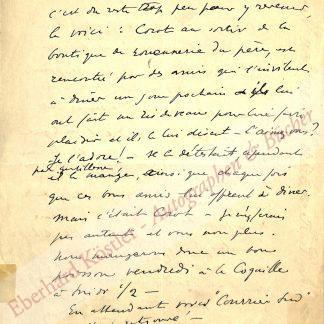 c'est du reste trop peu pour y revenir,
la voici : Corot au sortir de la
boutique de du père, est
rencontré par des amis qui l'invitent
à dîner un jour prochain – ils lui
ont fait un ris de veau pour lui faire
plaisir et ils lui disent – L'aimez-vous ?
Je l'adore ! – il le détestait cependant
et le mangea, ainsi que chaque fois
que ces bons amis lui offrent à dîner.
Mais c'était Corot –
pas autant et vous non plus.
Nous mangerons donc un bon
poisson vendredi à la Coquille
à midi 1/2 –
En attendant "Courrier Sud"
Eberhard Köstler Autographen & Bücher